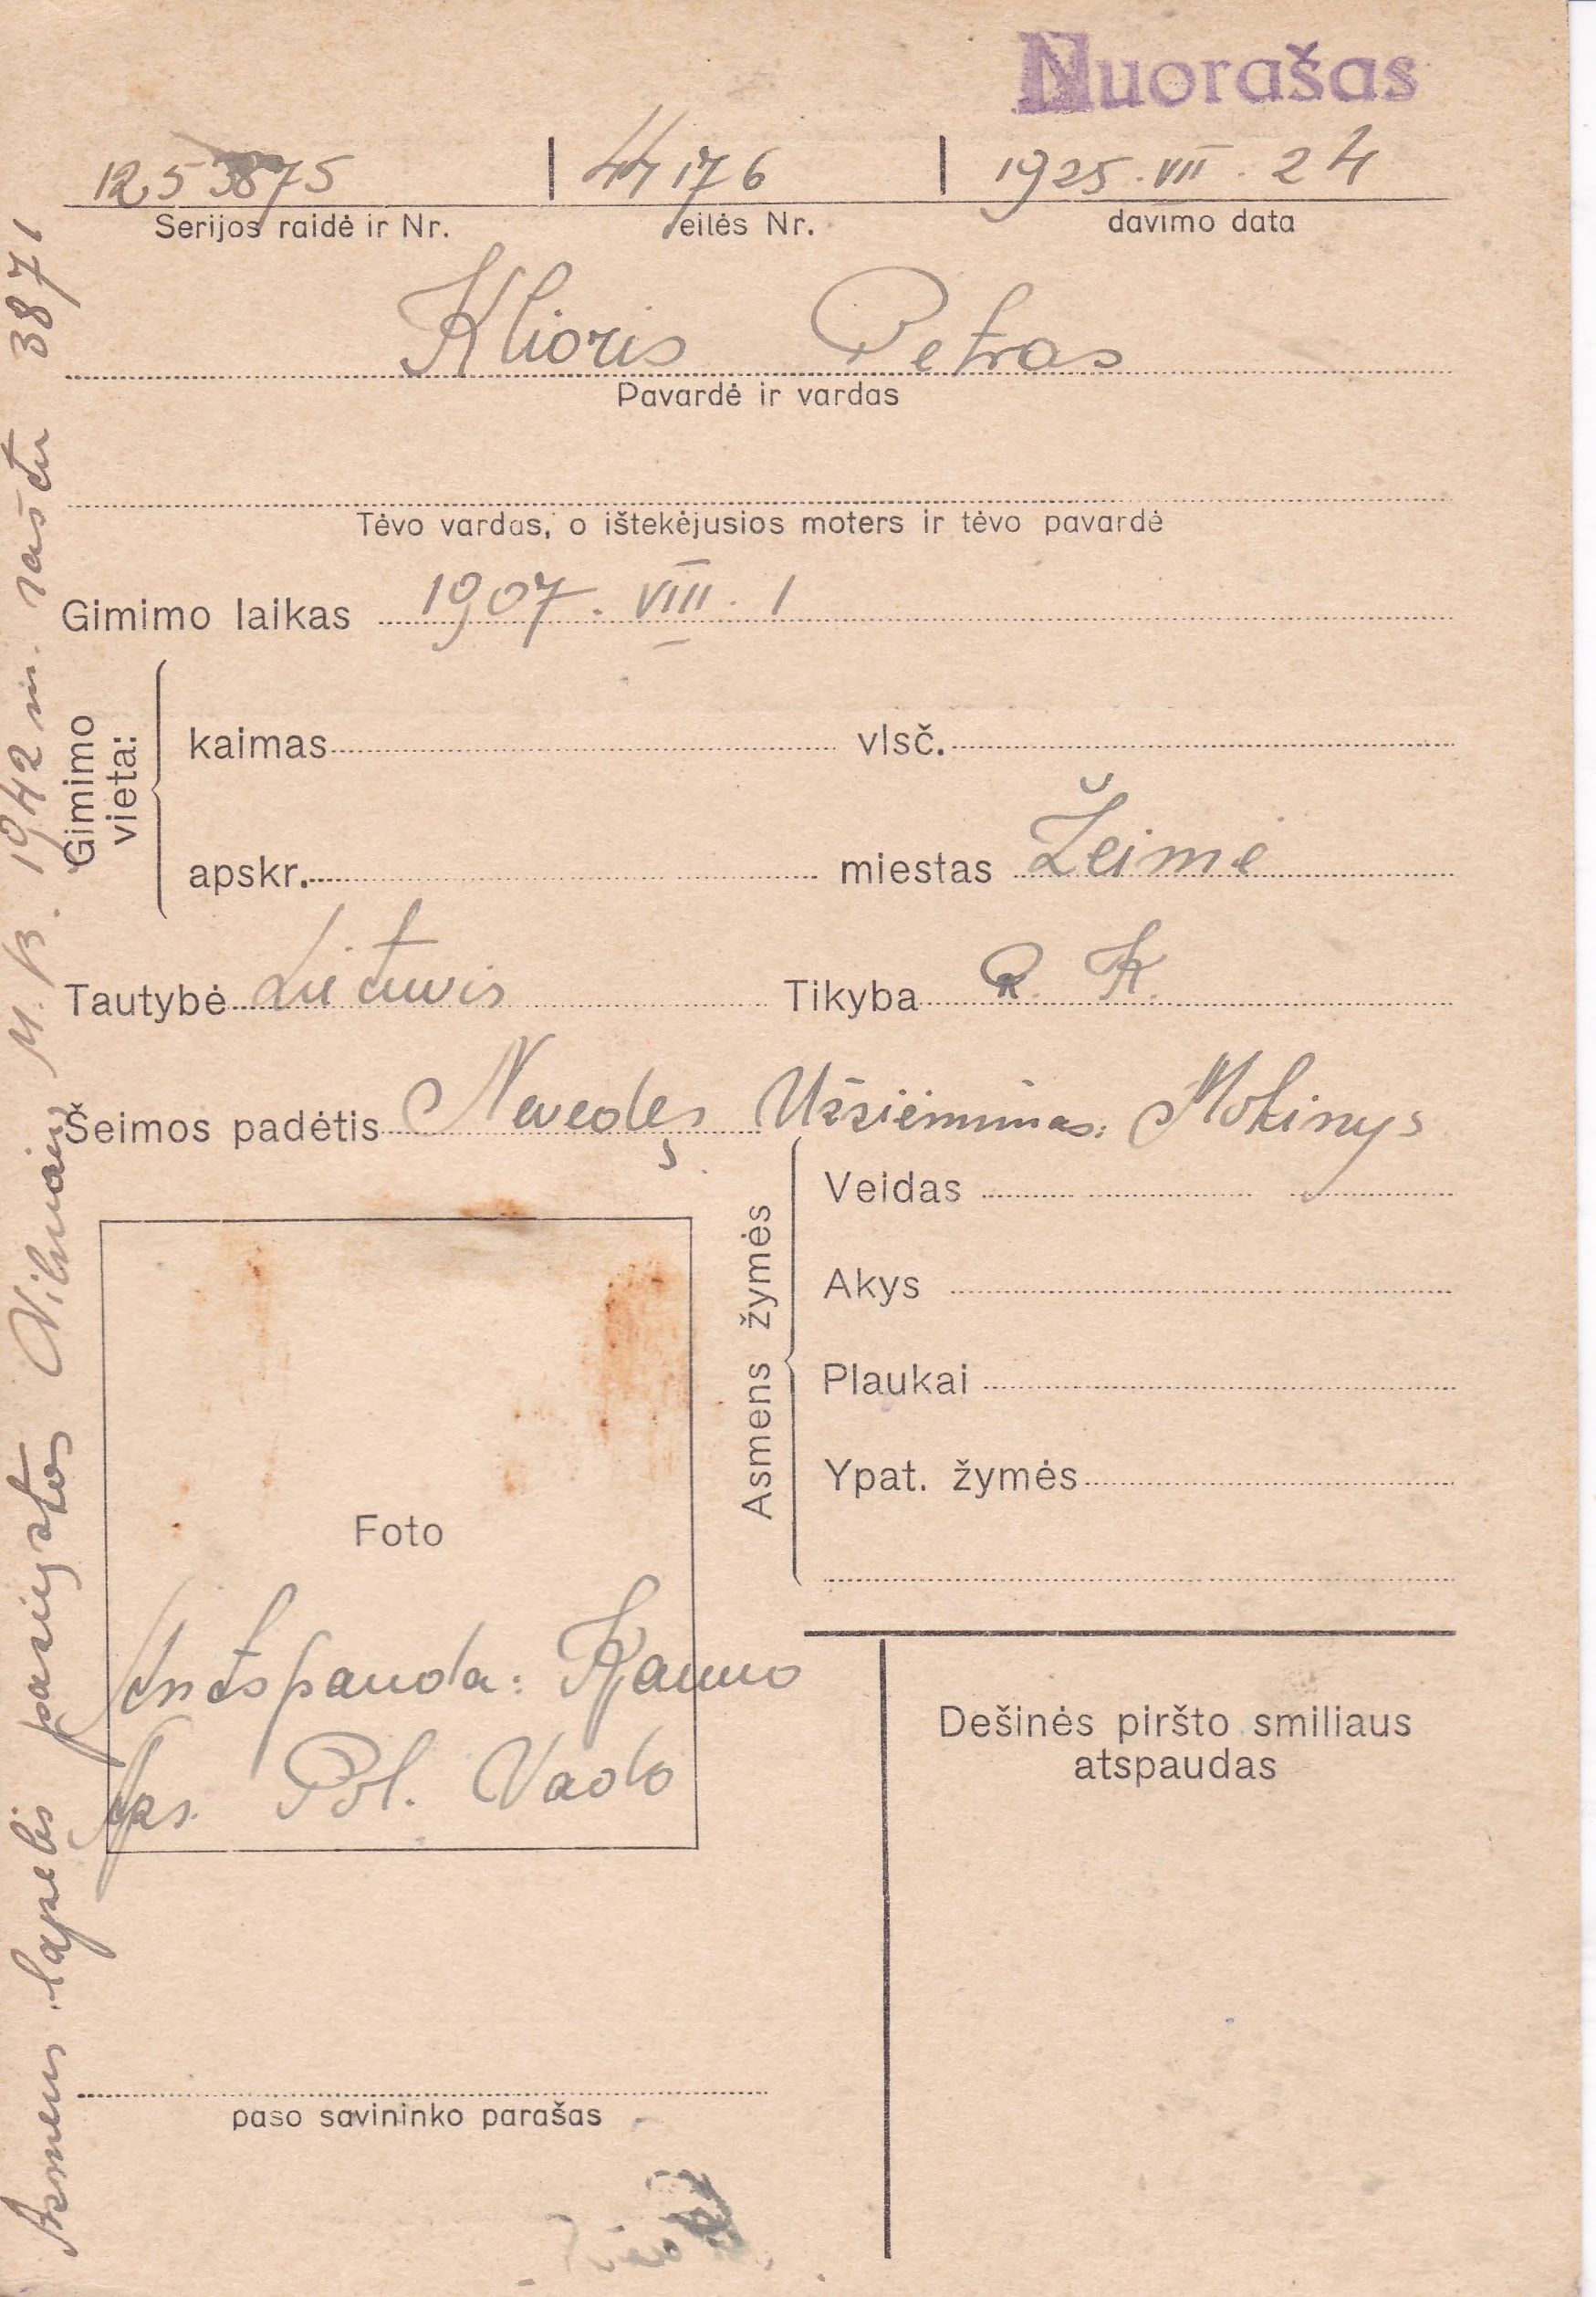 Nuorašas
1253875 | 44176 | 1925. VII. 24
Serijos raidė ir Nr. eilės Nr. davimo data
Klioris Petras
Pavardė ir vardas
Tėvo vardas, o ištekėjusios moters ir tėvo pavardė
Gimimo laikas 1907. VIII. 1
Gimimo vieta:
kaimas vlsč.
apskr. miestas Žeimė
Tautybė Lietuvis Tikyba R. K.
Šeimos padėtis Nevedęs Užsiėmimas: Mokinys
Asmens žymės
Veidas
Akys
Plaukai
Ypat. žymės
Foto
Antspauda: Kauno
Aps. Pol. Vado
Dešinės piršto smiliaus
atspaudas
paso savininko parašas
Asmens lapelis pasiųstas Vilniaus M. B. 1942 m. raštu 3871